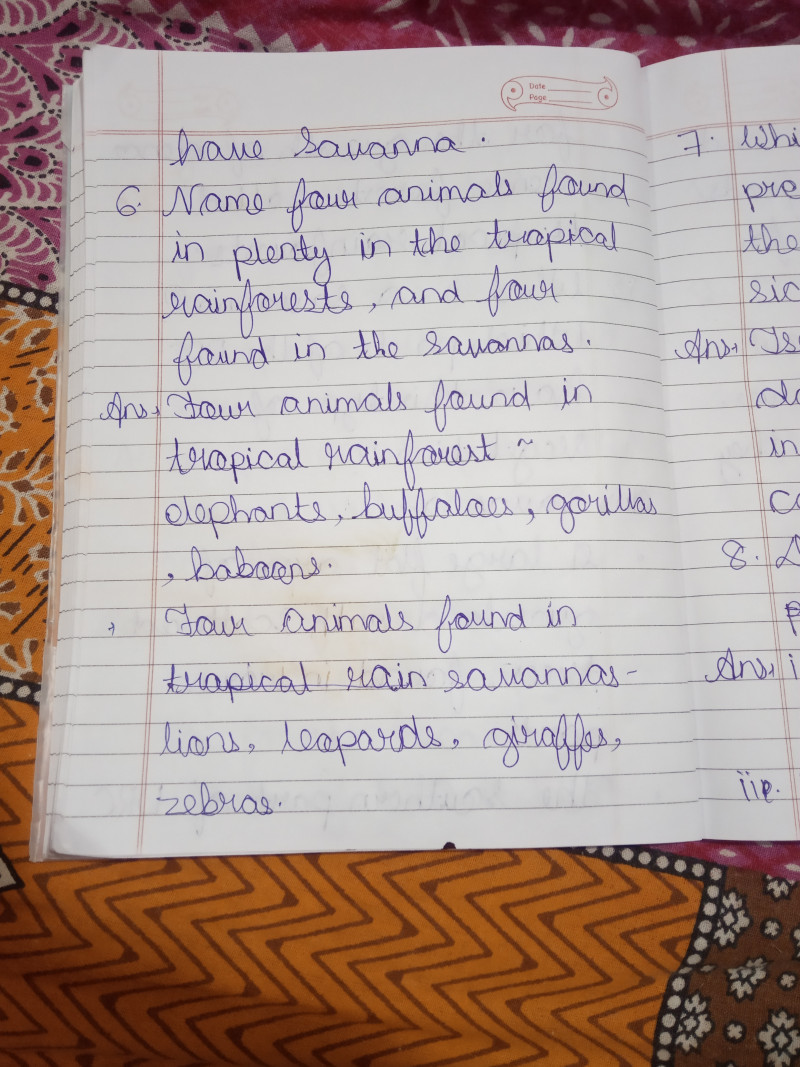 Date
Page
have savanna.
6. Name four animals found
in plenty in the tropical
rainforests, and four
found in the savannas.
Ans, Four animals found in
tropical rainforest ~
elephants, buffaloes, gorillas
, baboons.
, Four animals found in
tropical rain savannas-
lions, leopards, giraffes,
zebras.
7. Whi
pre
the
sic
Ans,
do
in
8.
Ans, i